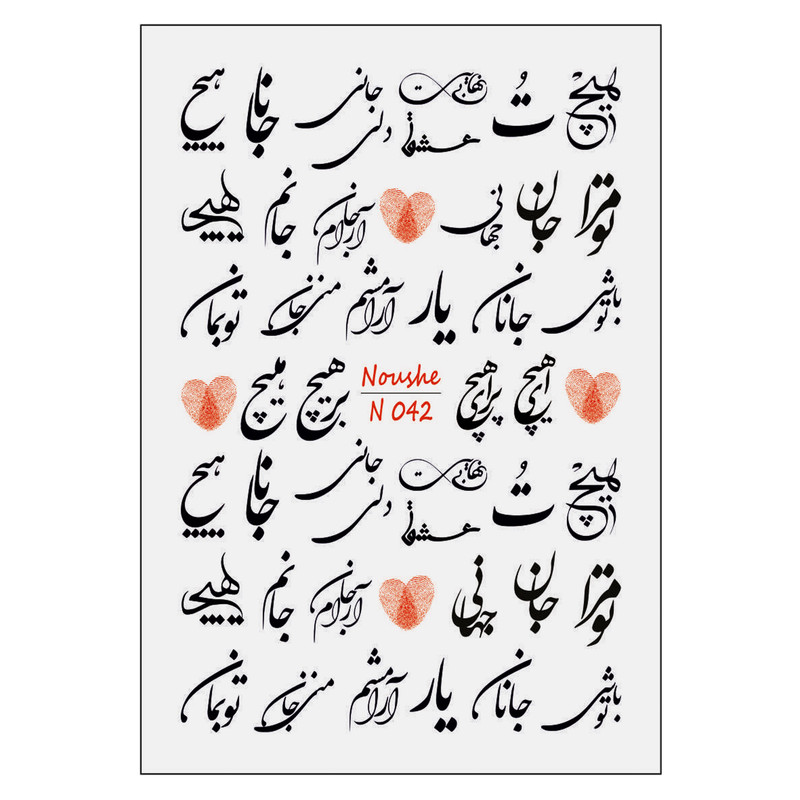 هیچ تُ بی‌نهایت عشق جانی دلی جانا هیچ
تو مرا جان جهانی آرام جان جانم هیچ
تو باشی جانان یار آرامشم جان منی تو بمان
هیچ Noushe برهیچ هیچ
N 042
هیچ تُ بی‌نهایت عشق جانی دلی جانا هیچ
تو مرا جان جهانی آرام جان جانم هیچ
تو باشی جانان یار آرامشم جان منی تو بمان